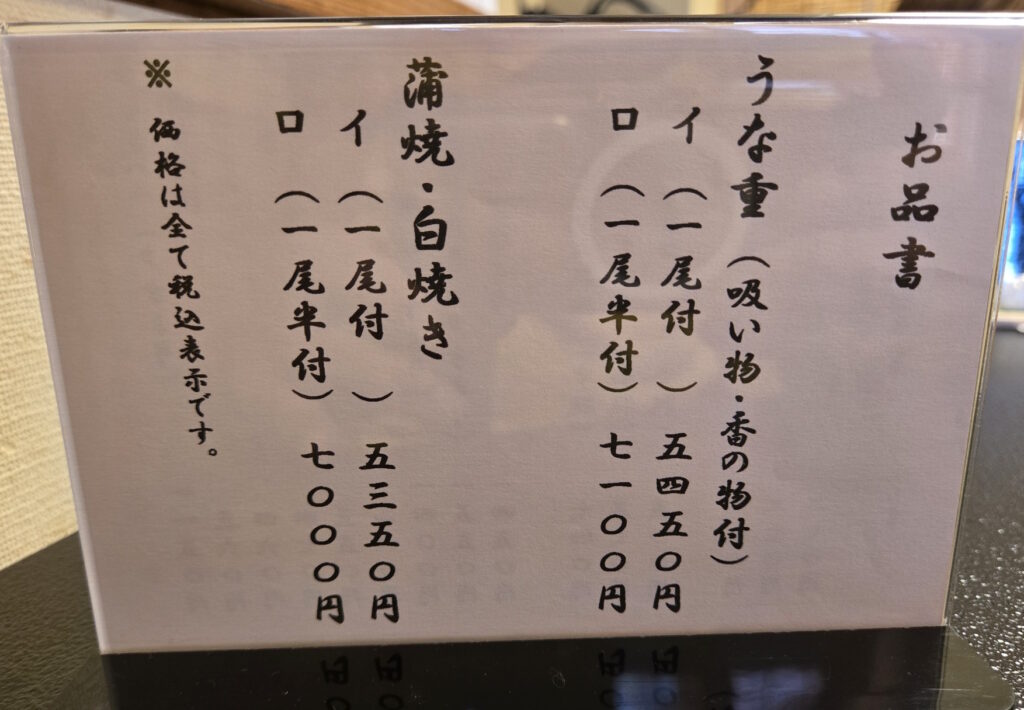 お品書
うな重（吸い物・香の物付）
イ（一尾付　）五四五〇円
ロ（一尾半付）七一〇〇円
蒲焼・白焼き
イ（一尾付　）五三五〇円
ロ（一尾半付）七〇〇〇円
※　価格は全て税込表示です。